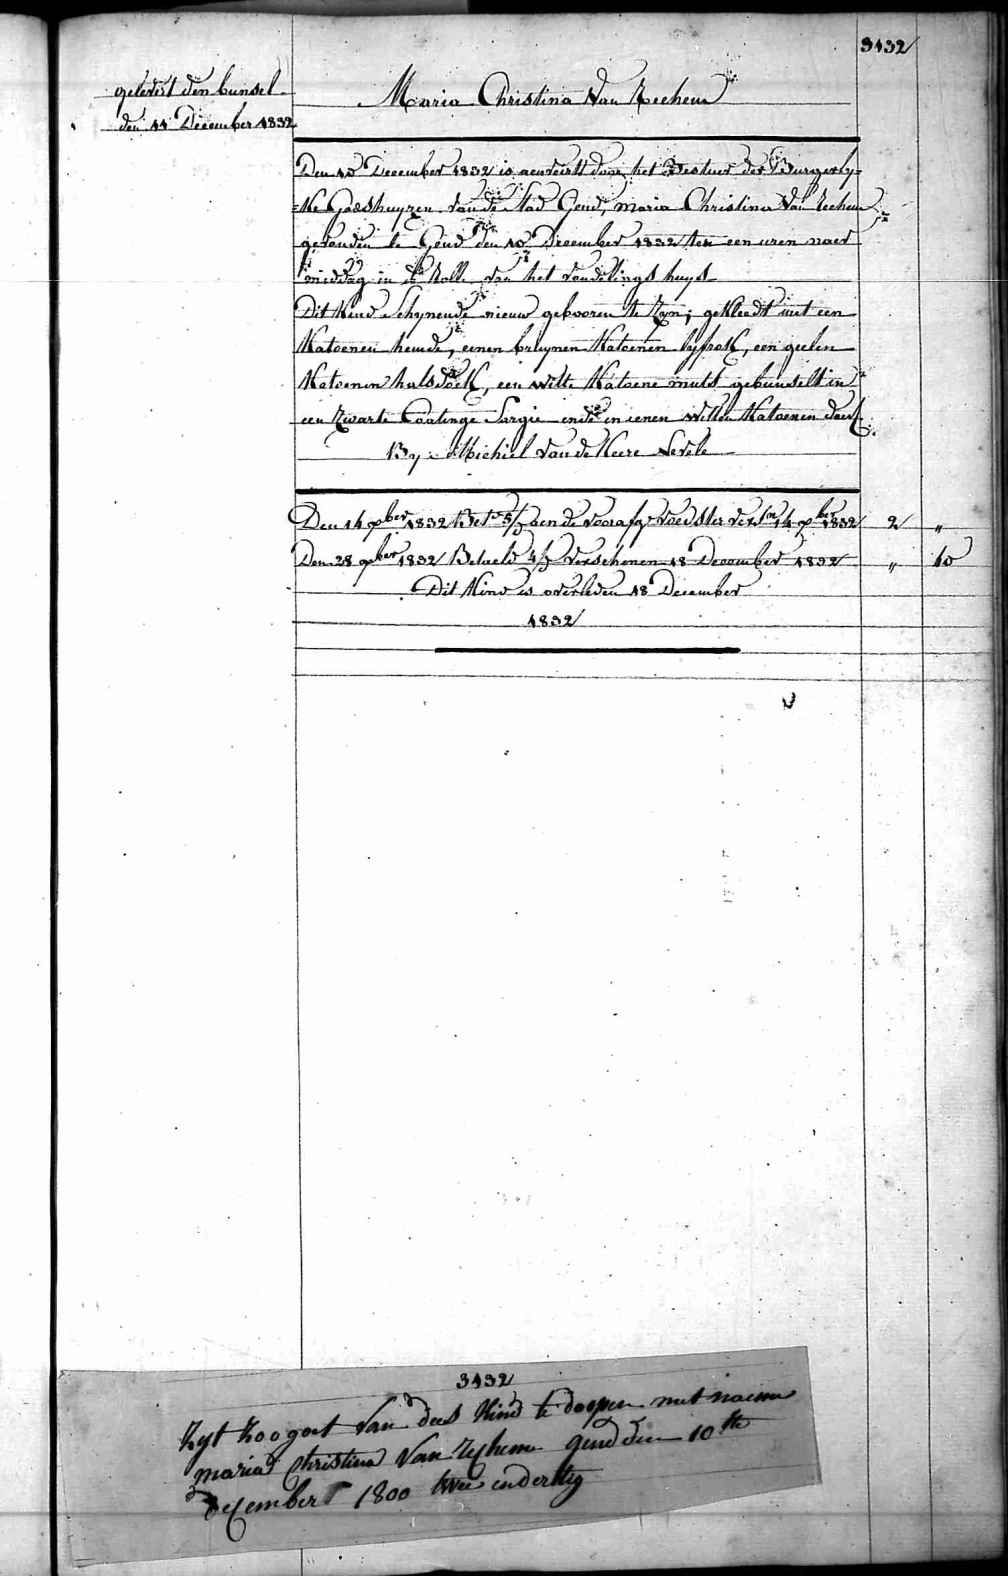 3132
gelevert den bunsel
den 11 December 1832
Maria Christina Van Reehem
Den 10 December 1832 is aenveirt door het Bestuer der Burgerly=
=ke Godshuyzen van de Stad Gend, Maria Christina Van Reehem
gevonden te Gend den 10 December 1832 ten een uren naer
middag in de Rolle van het vondelings huys
Dit Kind Schynende nieuw gebooren te Zyn; gekleedt met een
Katoenen hemde, eenen bruynen Katoenen lyfrok, een geelen
Katoenen halsdoek, een witte Katoene muts gebunselt in
een Zwarte Coatinge Sargie ende in eenen witten Katoenen doek.
By Michiel Van de Keere Sevele
Den 14 xber 1832 Bet 5/ aen de voorafg voedster vers 14 xber 1832 2 "
Den 28 xber 1832 Betaeld 4/ verschenen 18 December 1832 " 10
Dit Kind is overleden 18 December
1832
3132
Zyt Zoo goet Van dees Kind te doopen met naeme
maria Christina Van Zehem gend den 10te
december 1800 twee en dertig